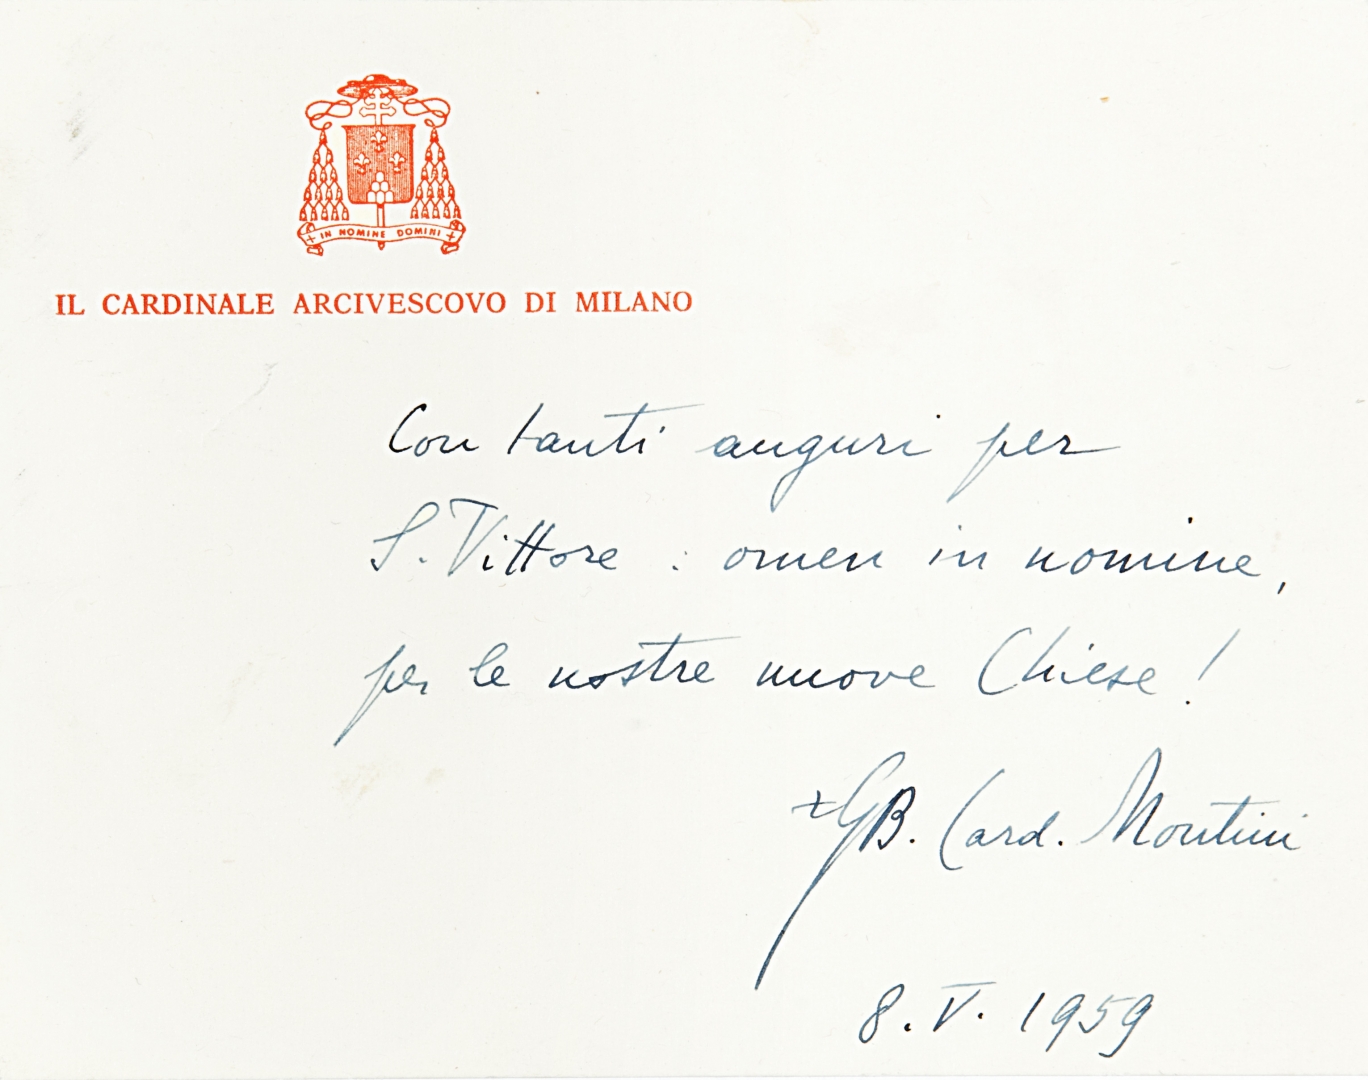 IN NOMINE DOMINI
IL CARDINALE ARCIVESCOVO DI MILANO
Con tanti auguri per
S. Vittore : omen in nomine,
per le nostre nuove Chiese!
+GB. Card. Montini
8.V.1959